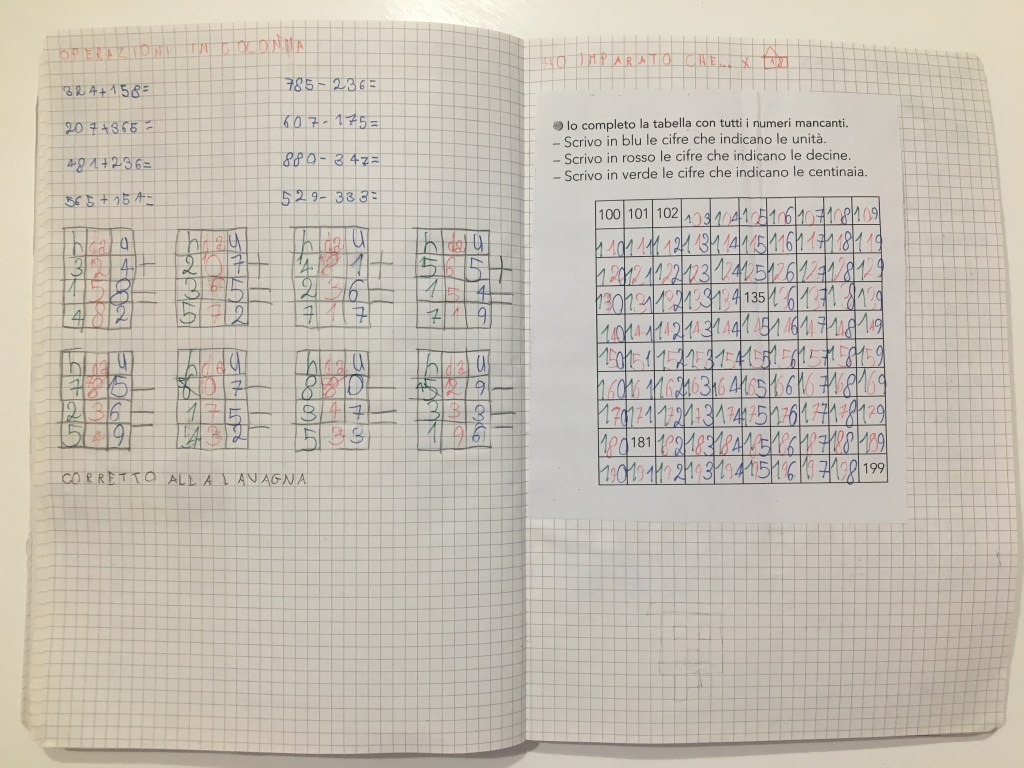 OPERAZIONI IN COLONNA
324+158= 785-236=
207+365= 607-175=
481+236= 880-347=
565+154= 529-333=
h da u h da u h da u h da u
3 2 4 + 2 0 7 + 4 8 1 + 5 6 5 +
1 5 8 = 3 6 5 = 2 3 6 = 1 5 4 =
4 8 2 5 7 2 7 1 7 7 1 9
h da u h da u h da u h da u
7 8 5 - 6 0 7 - 8 8 0 - 5 2 9 -
2 3 6 = 1 7 5 = 3 4 7 = 3 3 3 =
5 4 9 4 3 2 5 3 3 1 9 6
CORRETTO ALLA LAVAGNA
HO IMPARATO CHE... X 18
Io completo la tabella con tutti i numeri mancanti.
– Scrivo in blu le cifre che indicano le unità.
– Scrivo in rosso le cifre che indicano le decine.
– Scrivo in verde le cifre che indicano le centinaia.
100 101 102 103 104 105 106 107 108 109
110 111 112 113 114 115 116 117 118 119
120 121 122 123 124 125 126 127 128 129
130 131 132 133 134 135 136 137 138 139
140 141 142 143 144 145 146 147 148 149
150 151 152 153 154 155 156 157 158 159
160 161 162 163 164 165 166 167 168 169
170 171 172 173 174 175 176 177 178 179
180 181 182 183 184 185 186 187 188 189
190 191 192 193 194 195 196 197 198 199